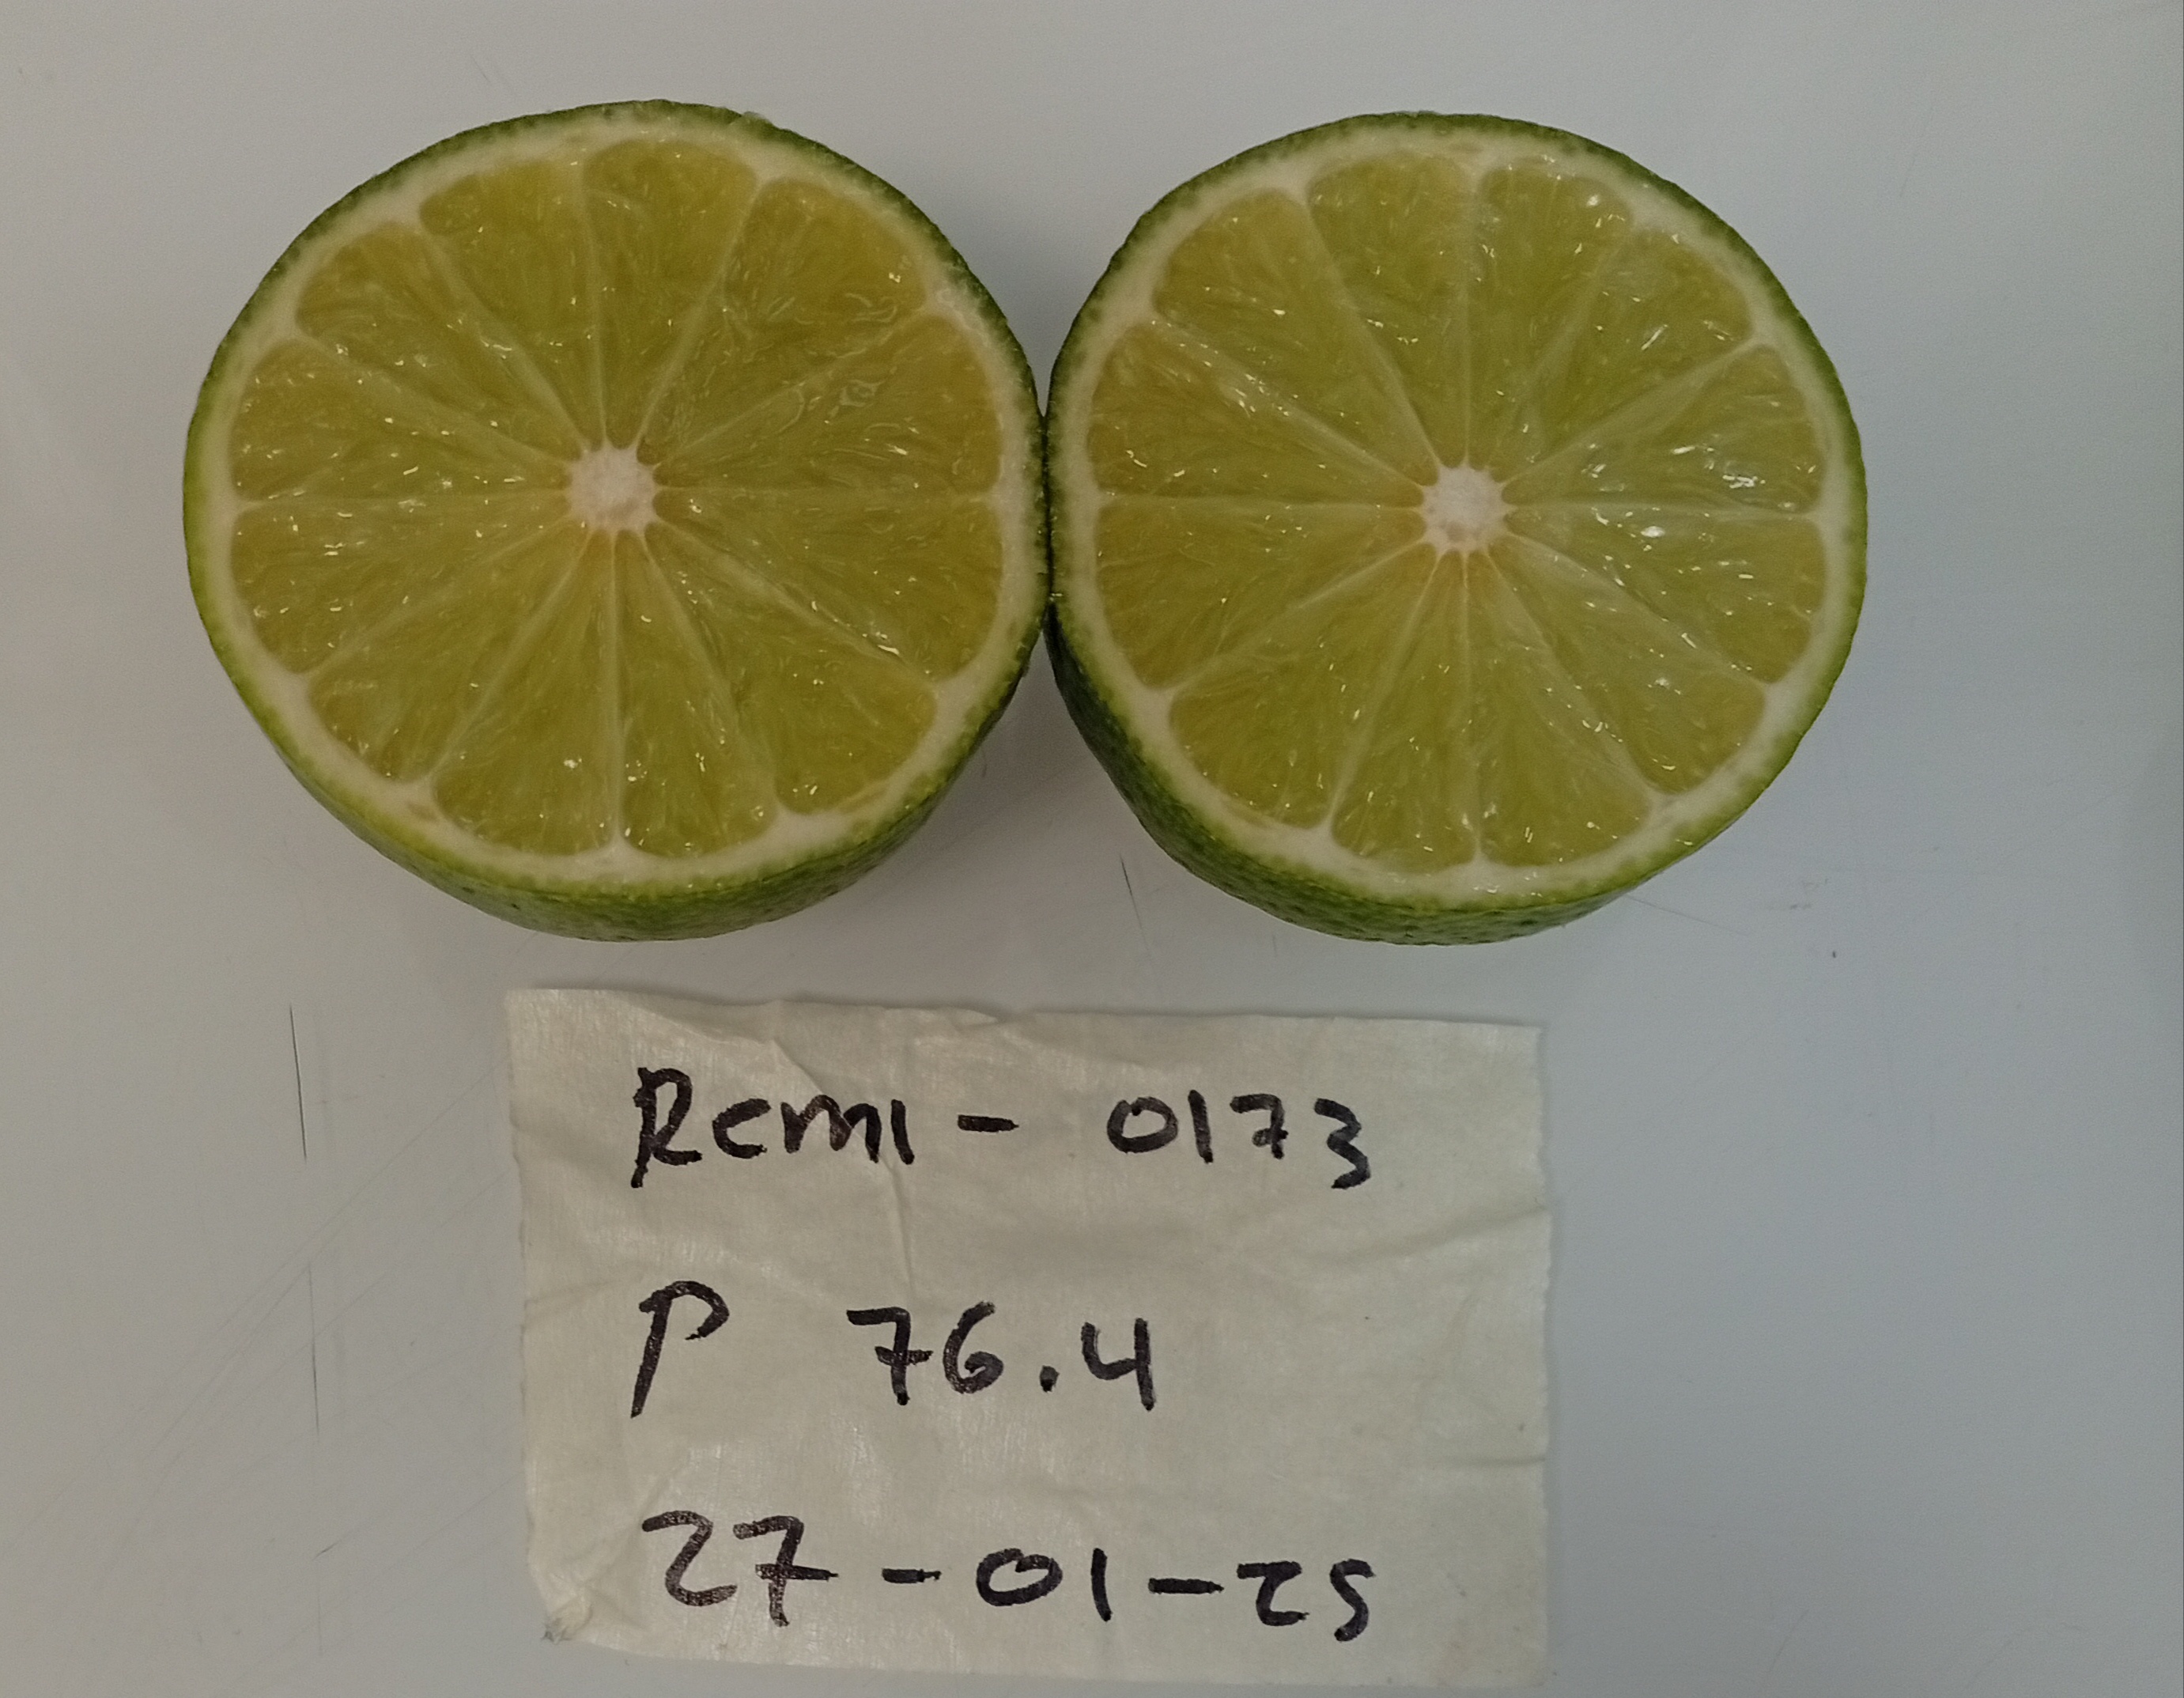 Remi - 0173
P 76.4
27-01-25